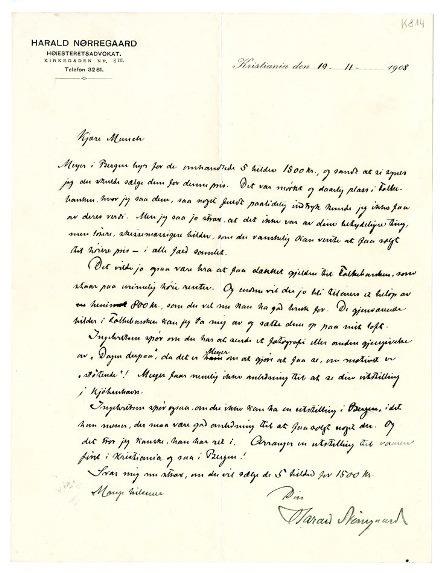 K 814
HARALD NØRREGAARD
HØIESTERETSADVOKAT.
KIRKEGADEN NR. 8 III.
Telefon 3281.
Kristiania den 19 - 11 - 1908
Kjære Munch
Meyer i Bergen byr for de omhandlede 5 bilder 1500 kr., og sandt at si synes
jeg du skulde sælge dem for denne pris. Det var mørkt og daarlig plass i Folke-
banken, hvor jeg saa dem, saa noget fuldt paalidelig indtryk kunde jeg ikke faa
av deres verdi. Men jeg saa jo straks, at det ikke var av dine betydelige ting,
men større, skissemæssige bilder, som du vanskelig kan vente at faa solgt
til høiere pris – i alle fald samlet.
Det vilde jo ogsaa være bra at faa dækket gjelden til Folkebanken, som
staar paa urimelig høie renter. Og endnu vil der jo bli tilovers et beløp av
en 800 kr., som du vel nu kan ha god bruk for. De gjenværende
bilder i Folkebanken kan jeg ta mig av og sætte dem op paa mit loft.
spør om du har at sende et fotografi eller anden gjengivelse
av "Dagen derpaa", da det er Meyer om at gjøre at faa se, om motivet er
"støtende"! Meyer faar nemlig ikke anledning til at se din utstilling
i Kjøbenhavn.
spør ogsaa, om du ikke kan ha en utstilling i Bergen, idet
han mener, der maa være god anledning til at faa solgt noget der. Og
det tror jeg kanske, han har ret i. Arranger en utstilling til vaaren
først i Kristiania og saa i Bergen!
Svar mig nu straks, om du vil sælge de 5 bilder for 1500 kr.
Mange hilsener
Din
Harald Nørregaard